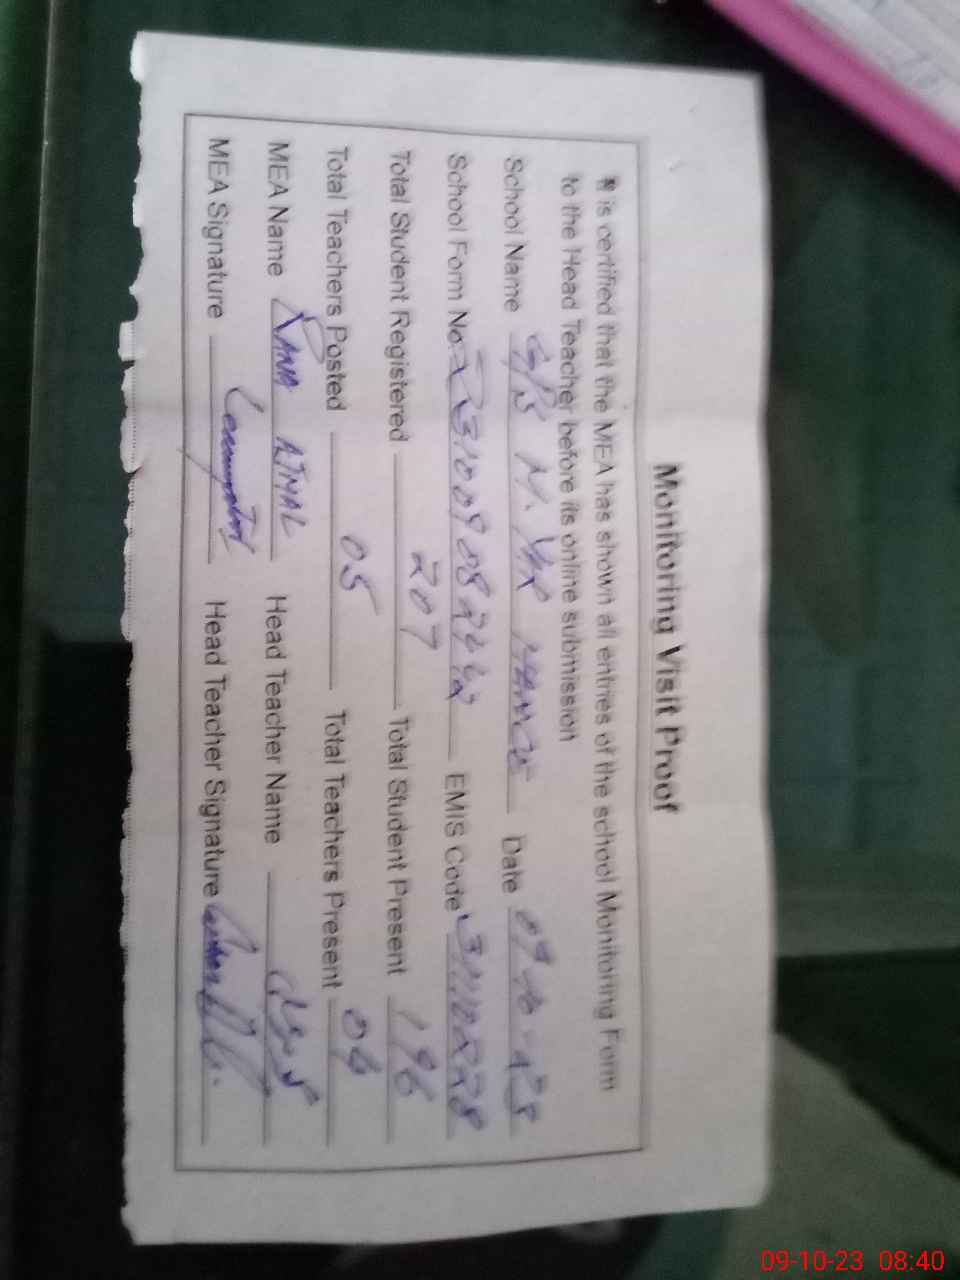 Monitoring Visit Proof
It is certified that the MEA has shown all entries of the school Monitoring Form
to the Head Teacher before its online submission
School Name G/PS M. Date 09-10-23
School Form No. EMIS Code
Total Student Registered 207 Total Student Present 196
Total Teachers Posted 05 Total Teachers Present 04
MEA Name RANA AJMAL Head Teacher Name
MEA Signature Head Teacher Signature
09-10-23 08:40